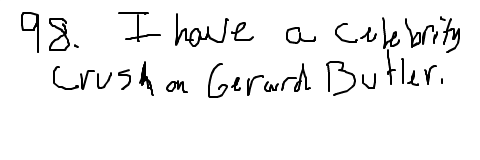 98. I have a celebrity
crush on Gerard Butler.